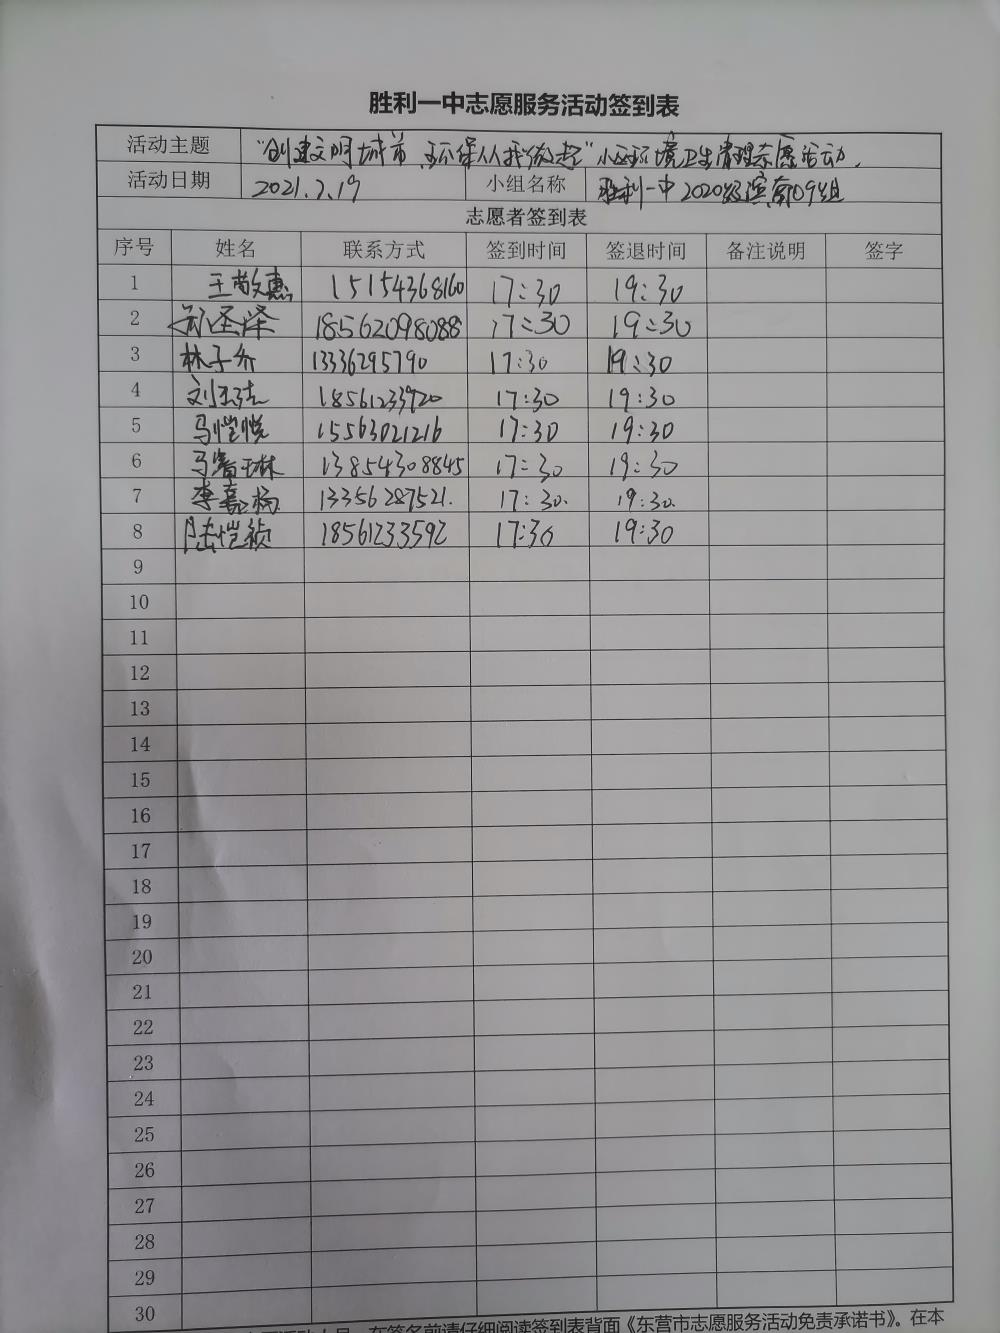 胜利一中志愿服务活动签到表
活动主题 "创建文明城市,环保从我做起"小区环境卫生清理志愿活动.
活动日期 2021.7.19 小组名称 胜利一中2020级滨南09组
志愿者签到表
序号 姓名 联系方式 签到时间 签退时间 备注说明 签字
1 王敬惠 15154368160 17:30 19:30
2 圣泽 18562098088 17:30 19:30
3 林子乔 13336295790 17:30 19:30
4 刘 18561233920 17:30 19:30
5 马恺悦 15563021216 17:30 19:30
6 马睿琳 13854308845 17:30 19:30
7 李嘉杨 13356287521. 17:30. 19:30.
8 陆恺祯 18561233592 17:30 19:30
9
10
11
12
13
14
15
16
17
18
19
20
21
22
23
24
25
26
27
28
29
30
在签名前请仔细阅读签到表背面《东营市志愿服务活动免责承诺书》。在本